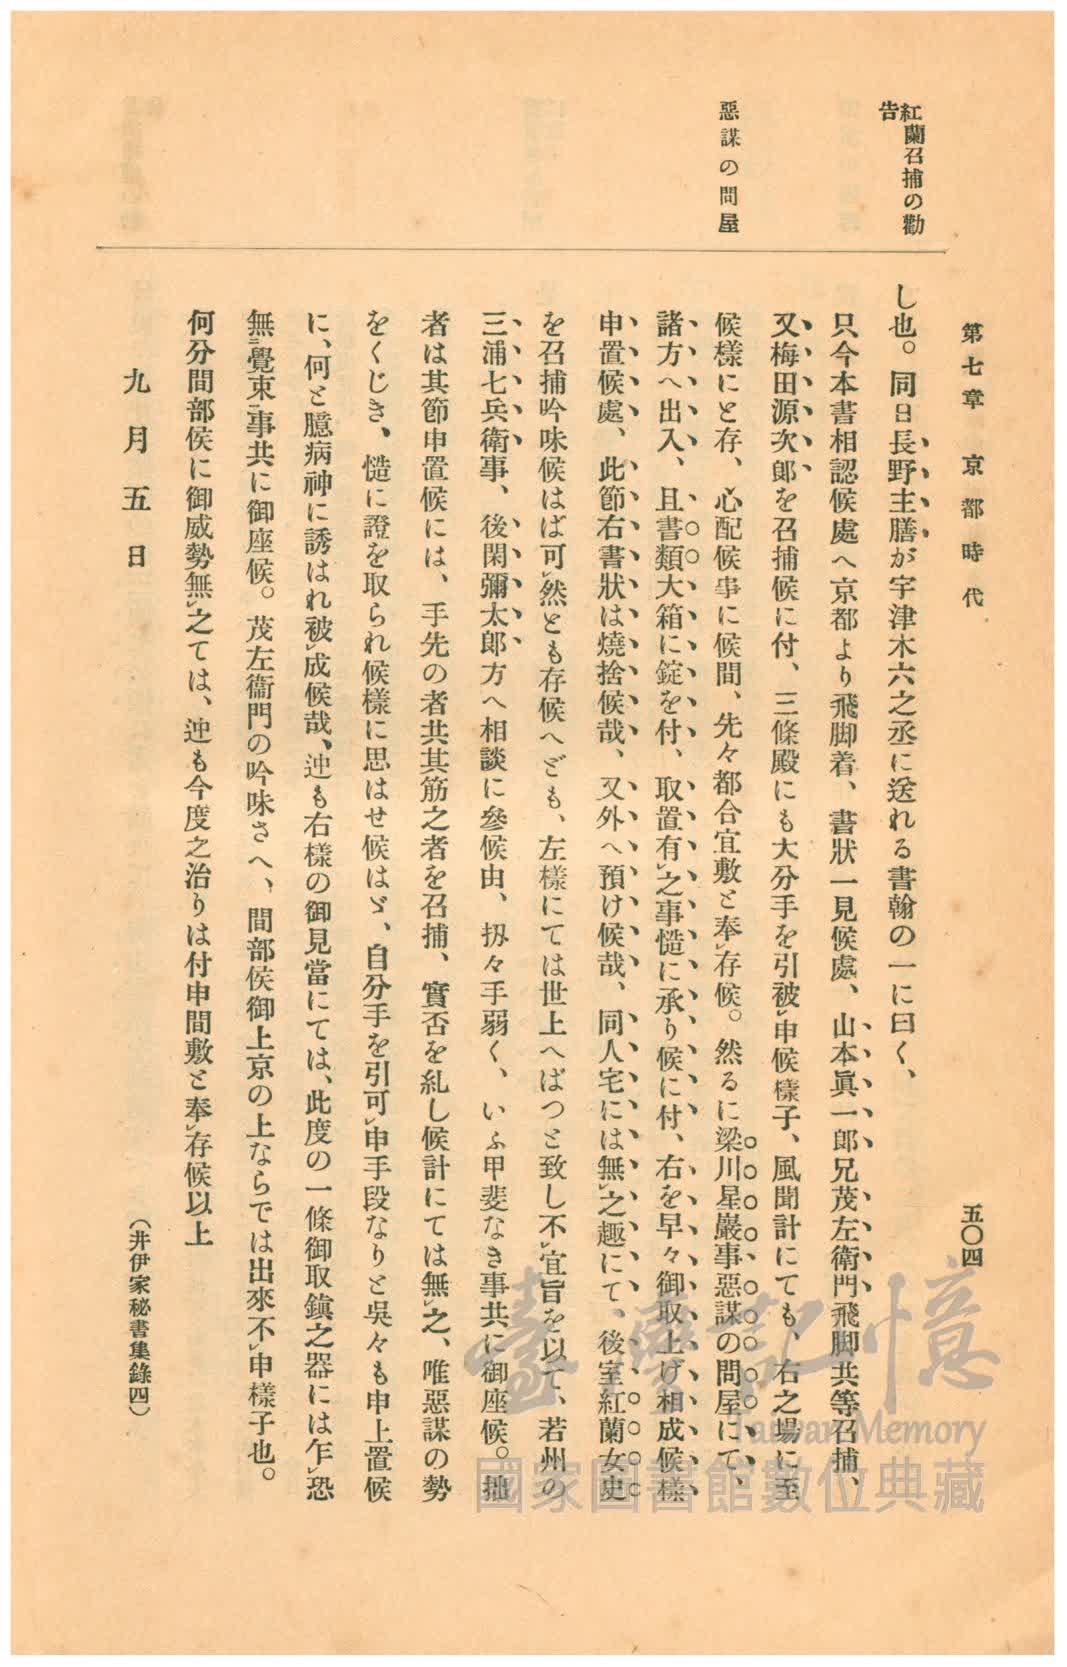 第七章 京都時代
五〇四
紅蘭召捕の勸
告
惡謀の問屋
し也。同日長野主膳が宇津木六之丞に送れる書翰の一に曰く、
只今本書相認候處へ京都より飛脚着、書狀一見候處、山本眞一郎兄茂左衞門飛脚共等召捕、
又梅田源次郎を召捕候に付、三條殿にも大分手を引被レ申候樣子、風聞計にても、右之場に至
候樣にと存、心配候事に候間、先々都合宜敷と奉レ存候。然るに梁川星巖事惡謀の問屋にて、
諸方へ出入、且書類大箱に錠を付、取置有レ之事慥に承り候に付、右を早々御取上げ相成候樣
申置候處、此節右書狀は燒捨候哉、又外へ預け候哉、同人宅には無レ之趣にて、後室紅蘭女史
を召捕吟味候はば可レ然とも存候へども、左樣にては世上へばつと致し不レ宜旨を以て、若州の
三浦七兵衞事、後閑彌太郎方へ相談に參候由、扨々手弱く、いふ甲斐なき事共に御座候。拙
者は其節申置候には、手先の者共其筋之者を召捕、實否を糺し候計にては無レ之、唯惡謀の勢
をくじき、慥に證を取られ候樣に思はせ候はゞ、自分手を引可レ申手段なりと吳々も申上置候
に、何と臆病神に誘はれ被レ成候哉、迚も右樣の御見當にては、此度の一條御取鎭之器には乍レ恐
無二覺束一事共に御座候。茂左衞門の吟味さへ、間部侯御上京の上ならでは出來不レ申樣子也。
何分間部侯に御威勢無レ之ては、迚も今度之治りは付申間敷と奉レ存候以上
九月五日
(井伊家秘書集錄四)
臺灣記憶
Taiwan Memory
國家圖書館數位典藏